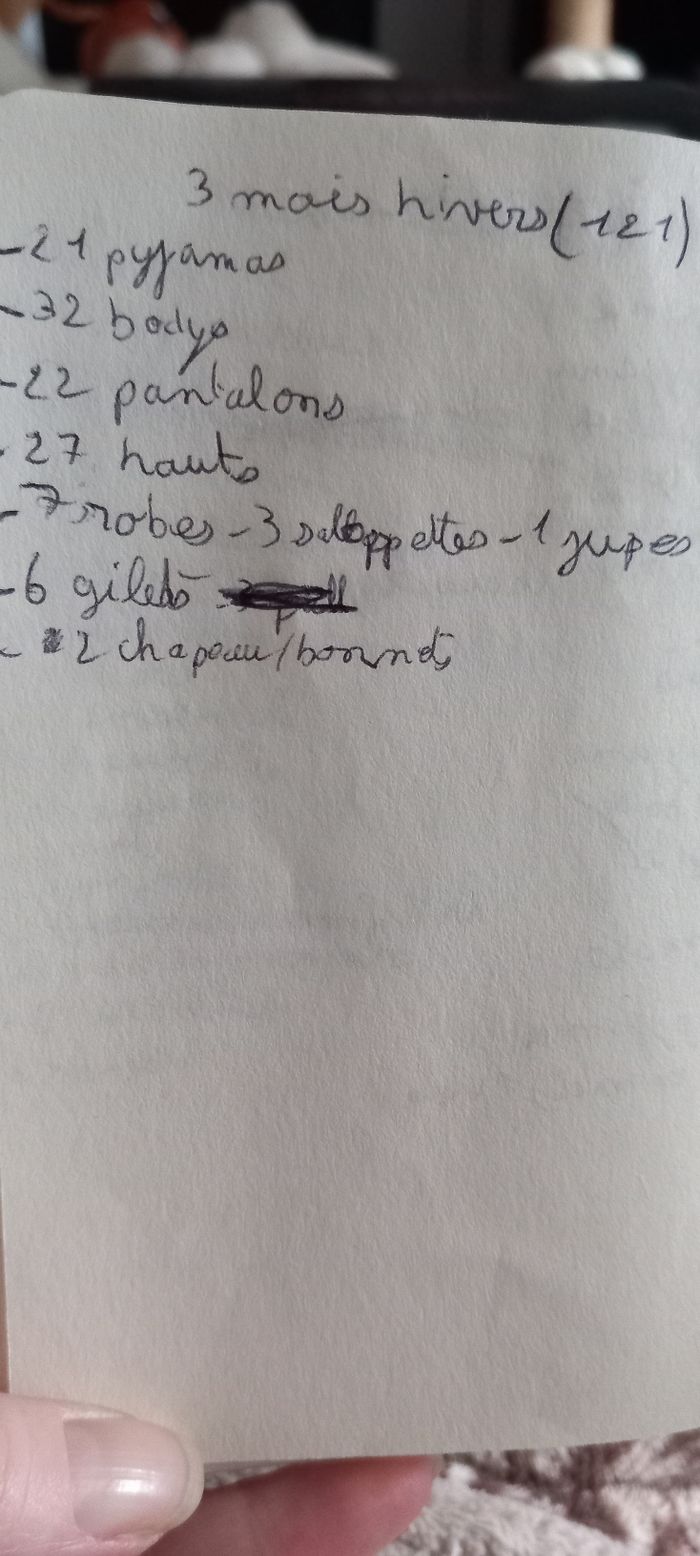 3 mois hivers (121)
-21 pyjamas
-32 bodys
-22 pantalons
-27 hauts
-7 robes -3 saloppettes -1 jupes
-6 gilets
-2 chapeau/bonnet